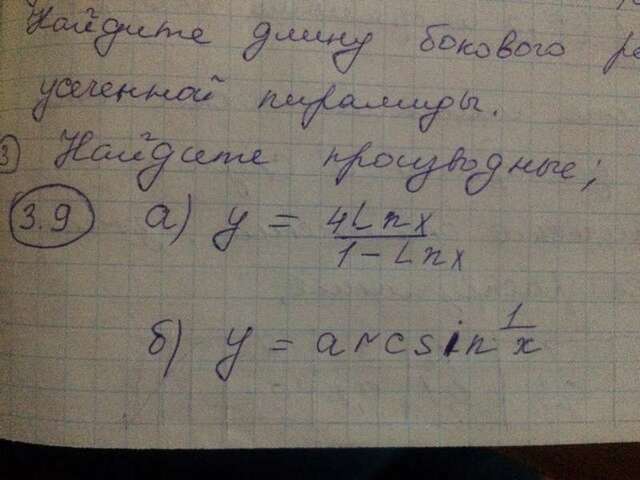 Найдите длину бокового
усеченной пирамиды.
3 Найдите производные;
3.9 а) y = 4Lnx / 1 - Lnx
б) y = arcsin 1/x